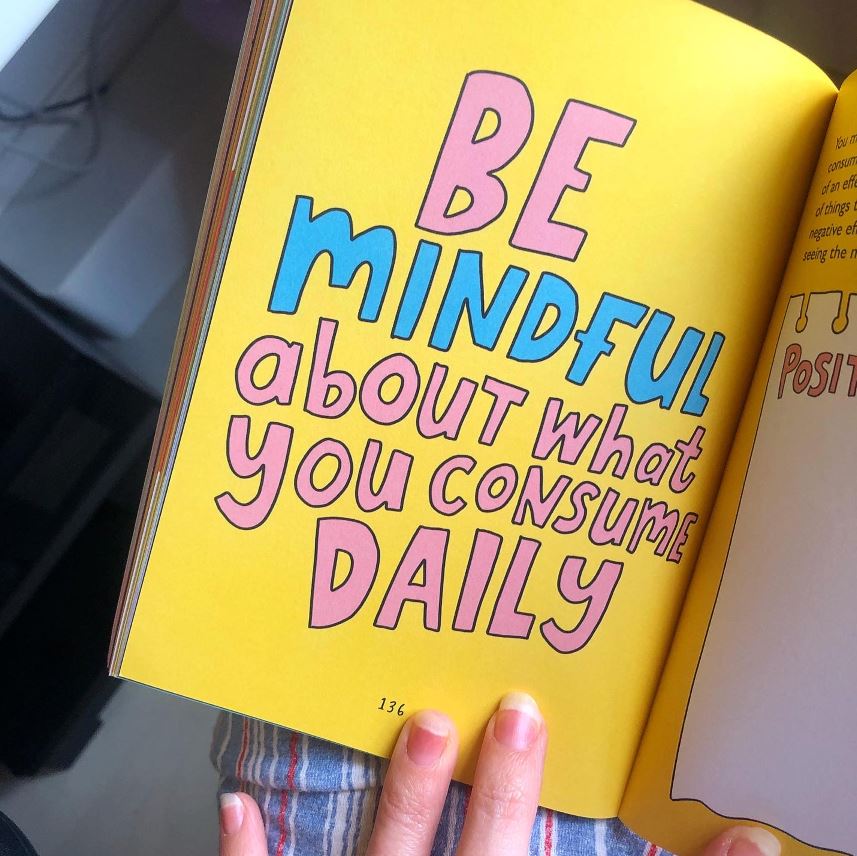 BE
MINDFUL
about what
you CONSUME
DAILY
136
You m
consum
of an effe
of things t
negative eff
seeing the n
POSIT